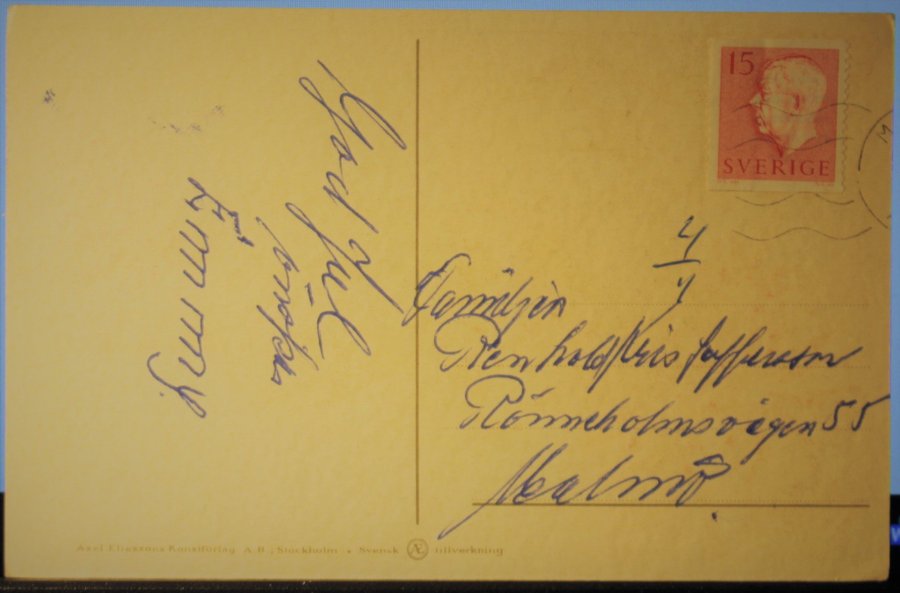 God Jul
önskas
Ämmmy.
15
SVERIGE
Familjen
Renhold
Rönneholmsvägen 55
Malmö
Axel Eliassons Konstförlag A.B., Stockholm • Svensk Æ tillverkning